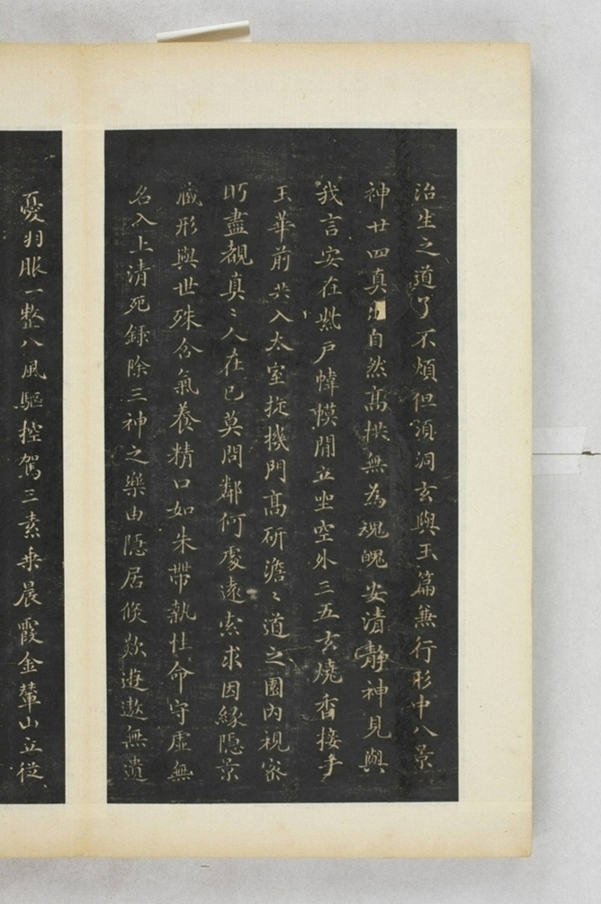 治生之道了不煩但須洞玄與玉篇兼行形中八景
神廿四真出自然高拱無為魂魄安清靜神見與
我言安在紫戶幃幙閒立坐空外三五玄燒香接手
玉華前共入太室璇機門高研澹〻道之園內視密
盼盡覩真〻人在己莫問鄰何處遠索求因緣隱景
藏形與世殊含氣養精口如朱帶執性命守虛無
名入上清死錄除三神之樂由隱居倏歘遊遨無遺
憂羽服一整八風驅控駕三素乘晨霞金輦山立從